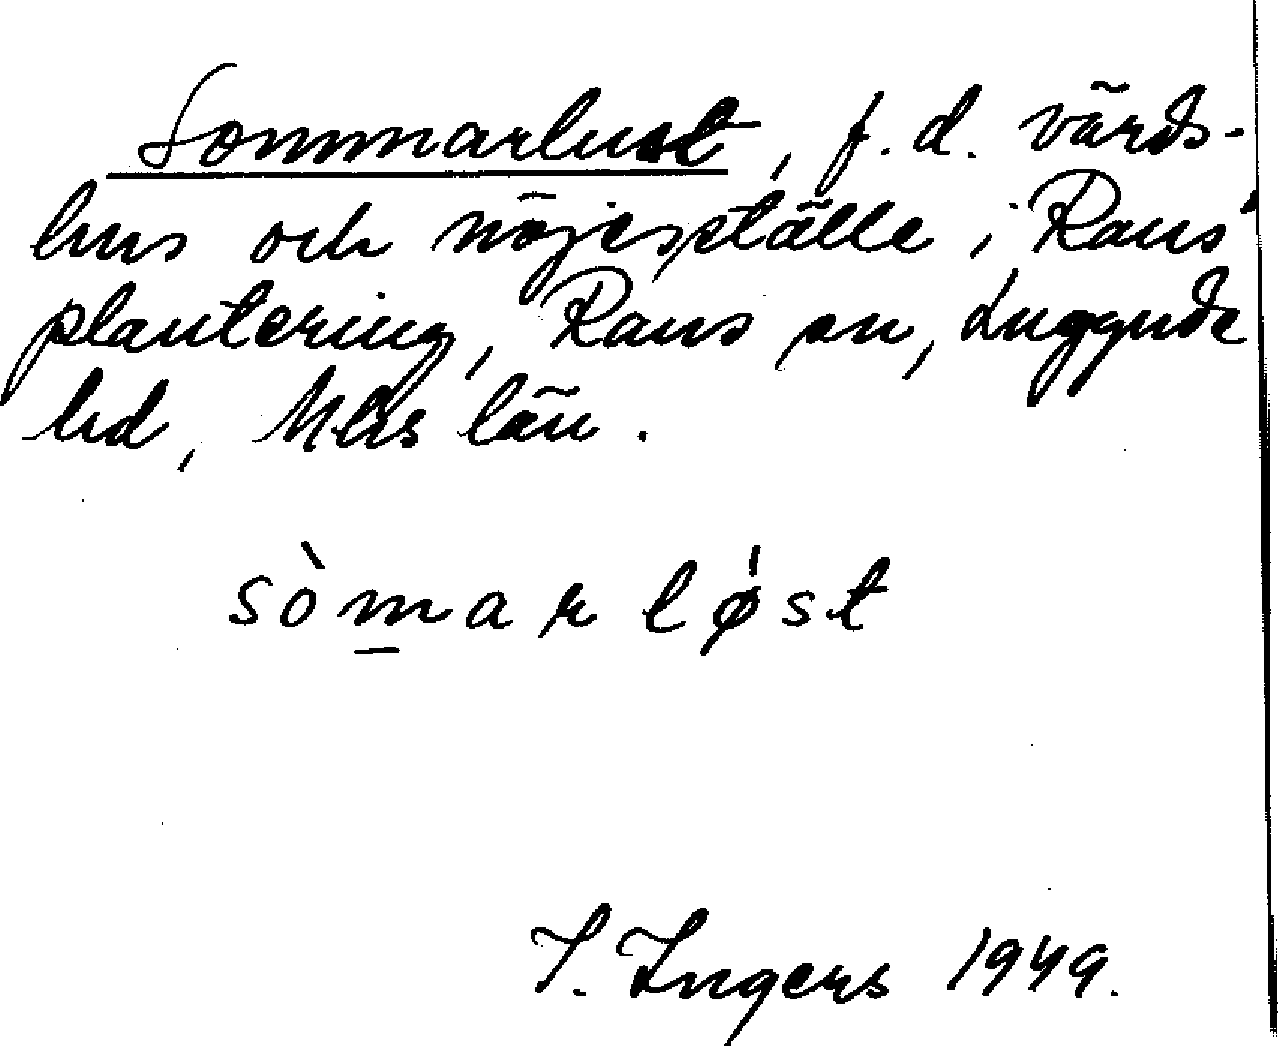 Sommarlust, f.d. värds-
hus och nöjesställe i Raus'
plantering, Raus sn, Luggude
hd, Mlhs län.
sòm̲arløst
I. Ingers 1949.